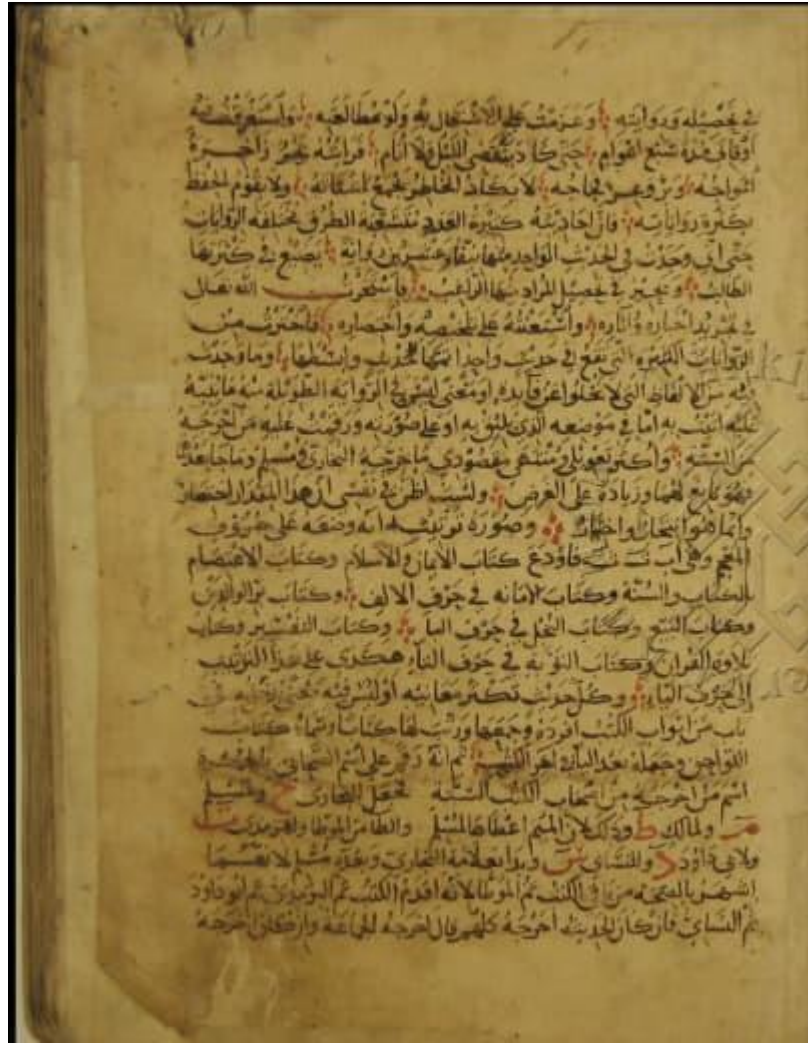 في تحصيله وروايته وعزمت على الاشتغال به ولو مطالعة واستغرقت فيه
أوقات مدة سبع أعوام حتى كاد ينقضي الليل والأيام فرأيته بحر زاخرة
أمواجه وبر وعر فجاجه لا يكاد الخاطر يجمع أشتاته ولا يقوم الحفظ
بكثرة رواياته فإن أحاديثه كثيرة العدد متشعبة الطرق مختلفة الروايات
حتى إني وجدت في الحديث الواحد منها عشرين رواية يضيع في كثرتها
الطالب ويحير في تحصيل المراد منها الراغب فاستخرت الله تعالى
في تجريد أخباره وآثاره واستعنته على تلخيصه واختصاره فاخترت من
الروايات الكثيرة التي تقع في حديث واحد أتمها وما وجدت
فيه من الألفاظ التي لا تخلوا عن فائدة أو معنى ليس في الرواية الطويلة
عليه أتيت به إما في موضعه الذي يليق به أو على صورته ورقمت عليه من أخرجه
من الستة وأكثر تعويلي ومنتهى مقصودي ما خرجه البخاري ومسلم وما عدا
فهو تابع لهما وزيادة على الغرض ولست أظن في نفسي أن هذا المقدار اختصار
وإنما هو وصورة ترتيبه أنه وضعه على حروف
المعجم وهي اب ت ث فأودع كتاب الإيمان والإسلام وكتاب الاعتصام
بالكتاب والسنة وكتاب الأمانة في حرف الألف وكتاب بر الوالدين
وكتاب البيع وكتاب البخل في حرف الباء وكتاب التفسير وكتاب
تلاوة القرآن وكتاب التوبة في حرف التاء هكذى على هذا الترتيب
إلى حرف الياء وكل حديث تكثر معانيه أو ليس فيه معنى يدخله في
باب من أبواب الكتب أفرده وجمعها ورتب لها كتابا وسماه كتاب
اللواحق وجعله بعد الياء آخر الكتب ثم أنه رقم على اسم الصحابي بالحمرة
اسم من أخرجه من أصحاب الكتب الستة فجعل للبخاري خ ولمسلم
م ولمالك ط وذلك لأن الميم أعطاها لمسلم والطاء من الموطأ وللترمذي ت
ولأبي داود د وللنسائي س وبدأ بعلامة البخاري وبعده مسلم لأنهما
اشتهرا بالصحة من باقي الكتب ثم الموطأ لأنه أقدم الكتب ثم الترمذي ثم أبو داود
ثم النسائي فإن كان الحديث أخرجه كلهم قال أخرجه الجماعة وإن كان أخرجه